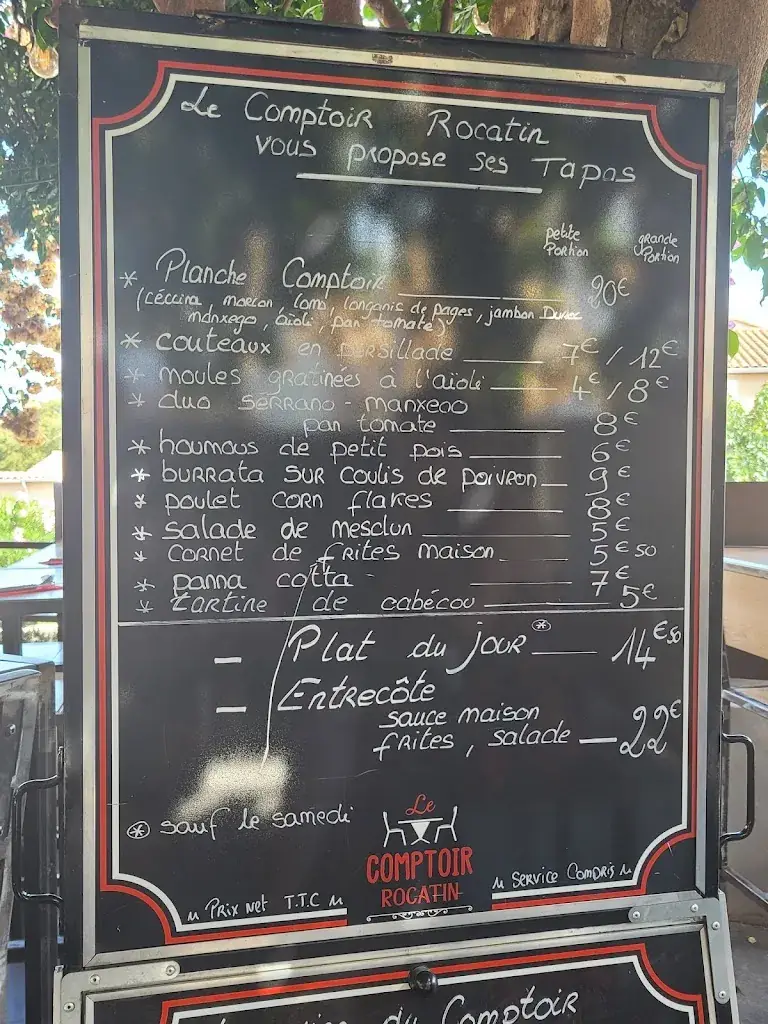 Le Comptoir Rocatin
vous propose ses Tapas
petite Portion
grande Portion
* Planche Comptoir 20€
(céccina, morcon, lomo, longanis de pages, jambon Duroc
manxego, aïoli, pan tomate)
* couteaux en persillade 7€ / 12€
* moules gratinées à l'aïoli 4€ / 8€
* duo serrano - manxego
pan tomate 8€
* houmous de petit pois 6€
* burrata sur coulis de poivron 9€
* poulet corn flakes 8€
* salade de mesclun 5€
* cornet de frites maison 5€50
* panna cotta 7€
* tartine de cabécou 5€
- Plat du jour * 14€50
- Entrecôte
sauce maison
frites, salade 22€
* sauf le samedi
Le
COMPTOIR
ROCATIN
Prix net T.T.C
Service Compris
du Comptoir